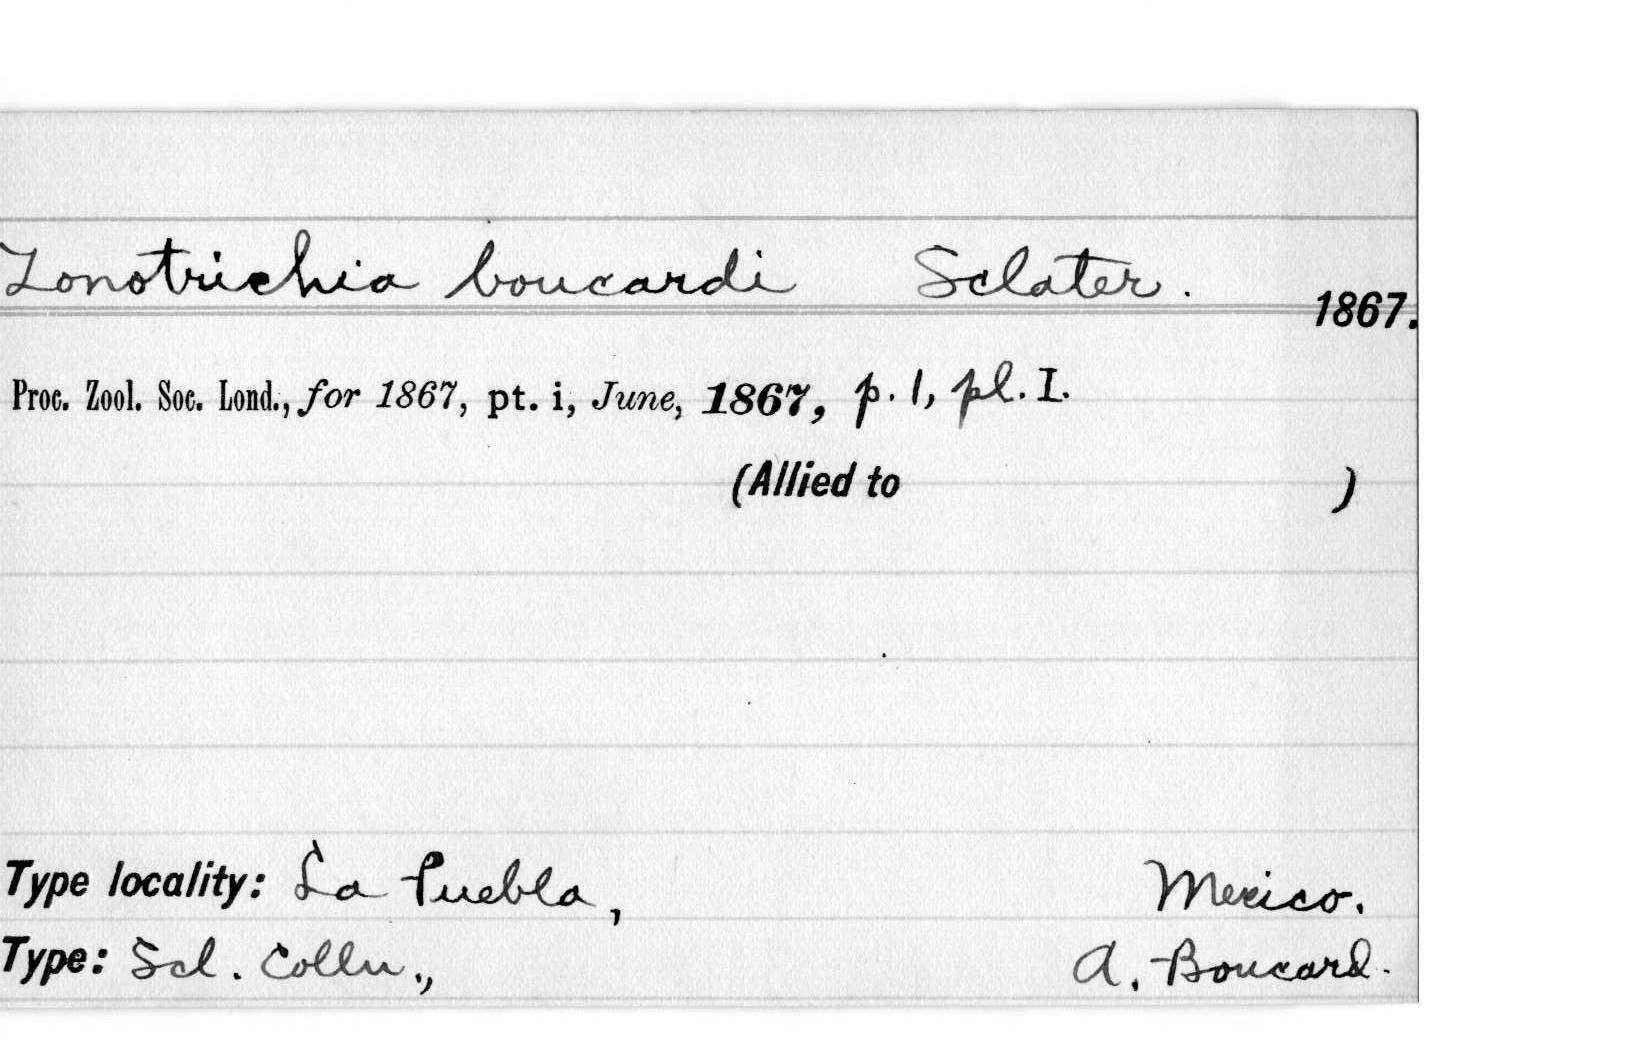 Zonotrichia boucardi Sclater.
1867.
Proc. Zool. Soc. Lond., for 1867, pt. i, June, 1867, p. 1, pl. I.
(Allied to )
Type locality: La Puebla, Mexico.
Type: Scl. Colln., A. Boucard.